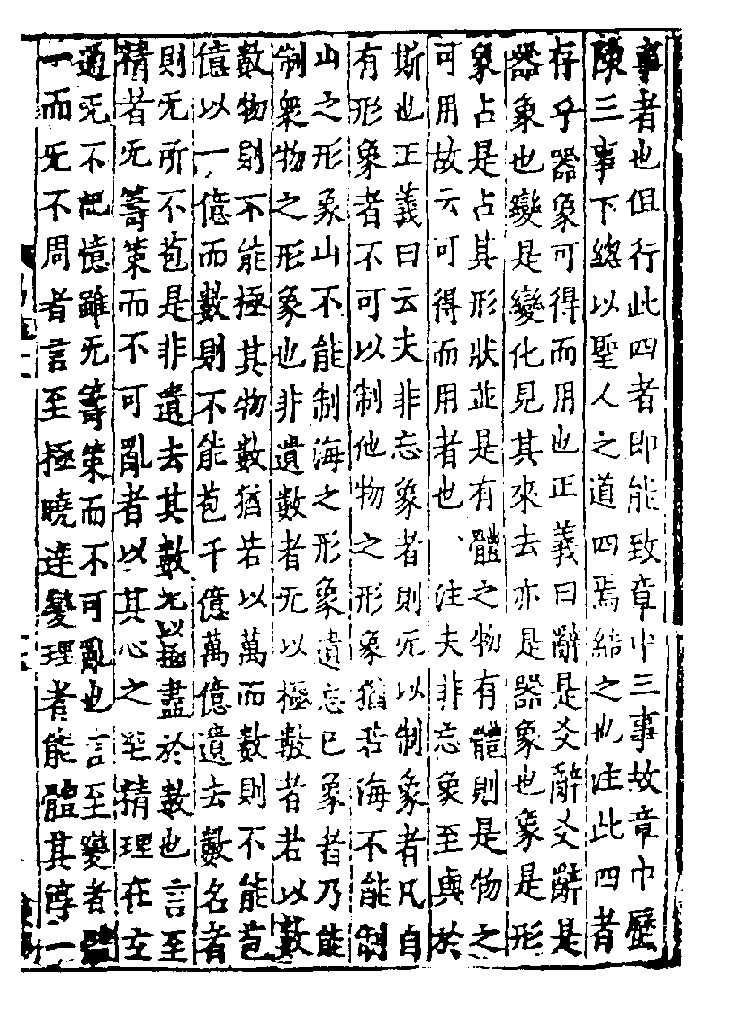 事者也但行此四者即能致章中三事故章中歷
陳三事下緫以聖人之道四焉結之也注此四者
存乎器象可得而用也正義曰辭是爻辭爻辭是
器象也變是變化見其來去亦是器象也象是形
象占是占其形狀並是有體之物有體則是物之
可用故云可得而用者也、注夫非忘象至與於
斯也正義曰云夫非忘象者則无以制象者凡自
有形象者不可以制他物之形象猶若海不能制
山之形象山不能制海之形象遺忘已象者乃能
制衆物之形象也非遺數者无以極數者若以數
數物則不能極其物數猶若以萬而數則不能苞
億以一億而數則不能苞千億萬億遺去數名者
則无所不苞是非遺去其數无以極盡於數也言至
精者无籌策而不可亂者以其心之至精理在玄
通无不記憶雖无籌策而不可亂也言至變者體
一而无不周者言至極曉達變理者能體其淳一